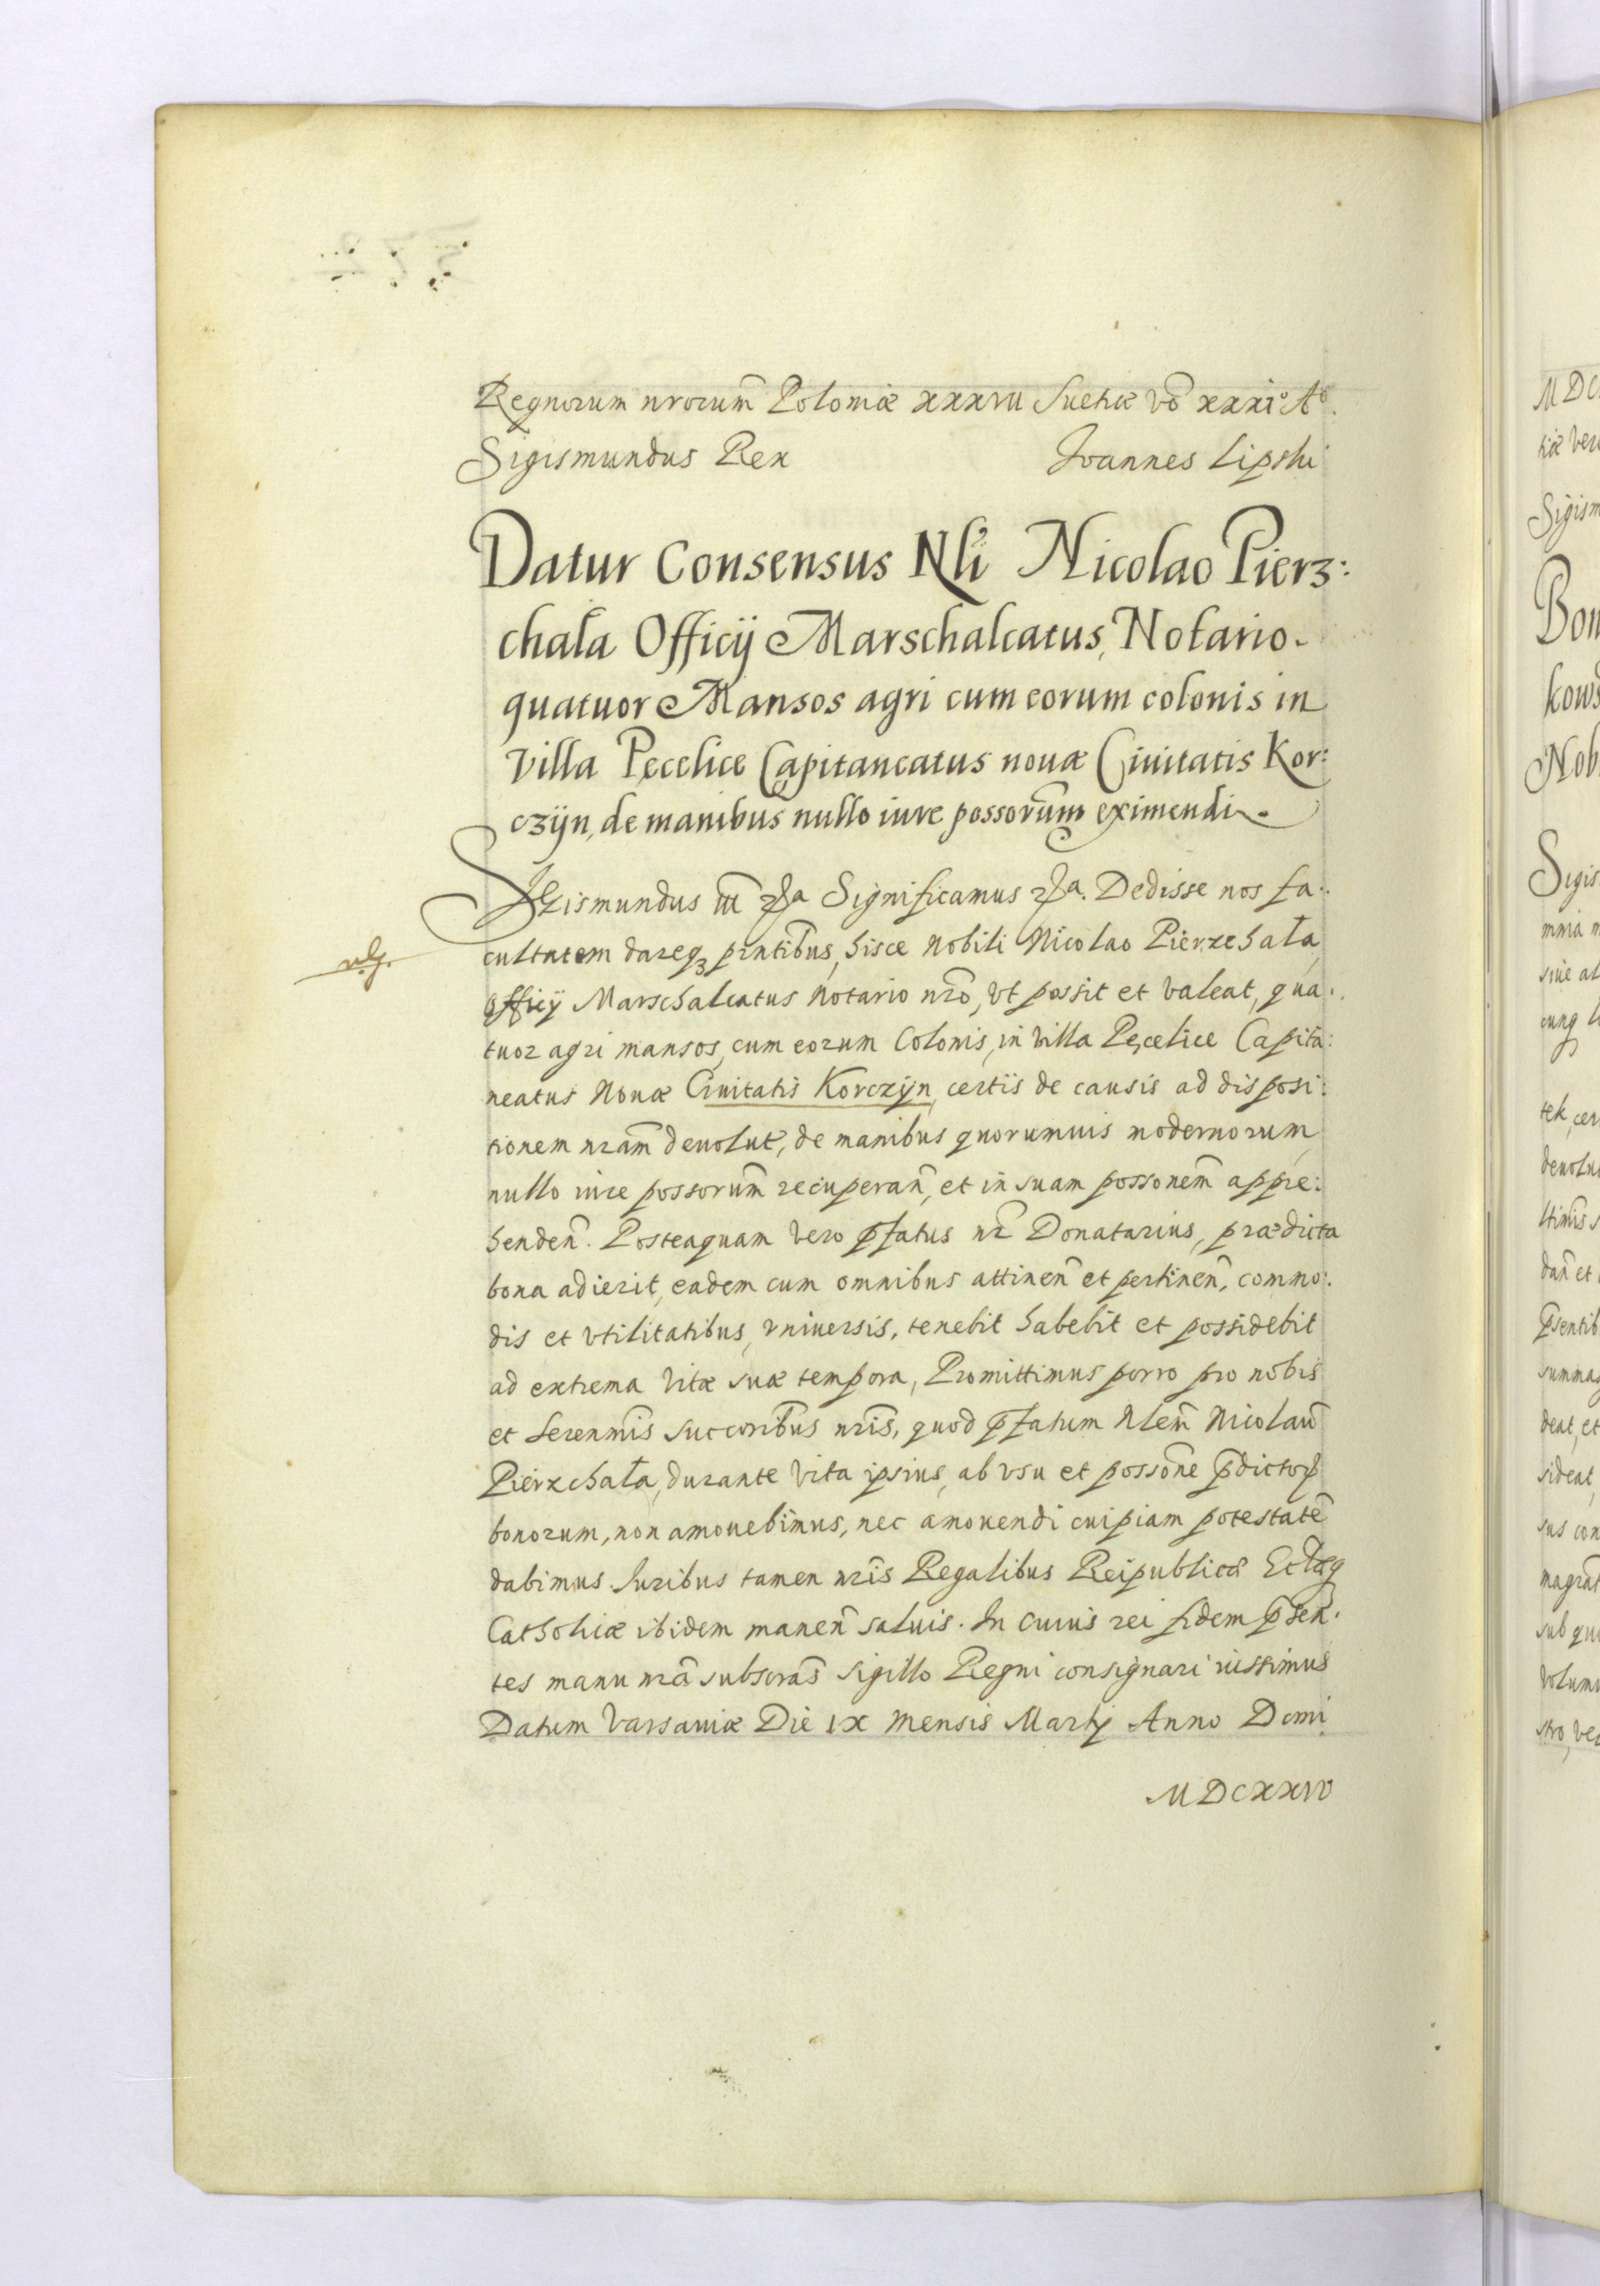 Regnorum nrorum̃ Poloniæ XXXVII Suetiæ vō XXXI° A°.
Sigismundus Rex Joannes Lipski
Datur Consensus Nli Nicolao Pierz:
chała Officij Marschalcatus, Notario.
quatuor Mansos agri cum eorum colonis in
Villa Pęcelice Capitaneatus nouæ Ciuitatis Kor:
czÿn, de manibus nullo iure possorum̃ eximendi.
SIgismundus III Significamus Dedisse nos fa:
cultatem dareq₃ pñtibus, hisce Nobili Nicolao Pierzchała
Officij Marschalcatus Notario nrõ, vt possit et valeat, qua:
tuor agri mansos, cum eorum Colonis, in Villa Pęcelice Capita:
neatus Nouæ Ciuitatis Korczÿn, certis de causis ad disposi:
tionem nram̃ deuolut̃, de manibus quorumuis modernorum,
nullo iure possorum̃ recuperañ, et in suam possonem̃ appre:
hendeñ. Posteaquam vero p̃fatus nr̃ Donatarius, prædicta
bona adierit, eadem cum omnibus attineñ et pertineñ, commo:
dis et vtilitatibus, vniuersis, tenebit habebit et possidebit
ad extrema vitæ suæ tempora, Promittimus porro pro nobis
et Serenmis̃ succoribus̃ nris̃, quod p̃fatum Nlem̃ Nicolaũ
Pierzchała, durante vita ipsius, ab vsu et possone̴ p̃dictoꝝ
bonorum, non amouebimus, nec amouendi cuipiam potestatẽ
dabimus. Iuribus tamen nris̃ Regalibus Reipublicæ Eclæq̃
Catholicæ ibidem maneñ saluis. In cuius rei fidem p̃sen:
tes manu nrã subscras̃ sigillo Regni consignari iussimus
Datum Varsauiæ Die IX Mensis Martij Anno Domi
MDCXXIV